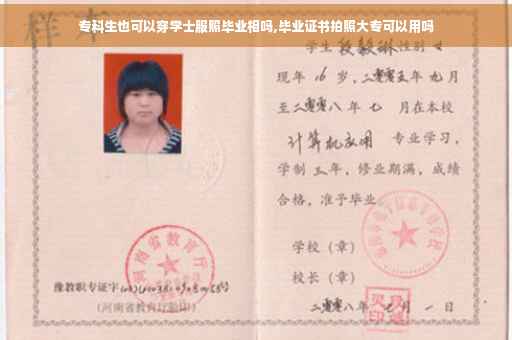 专科生也可以穿学士服照毕业相吗,毕业证书拍照大专可以用吗
样本
学生段毅琳性别女
现年16岁,二零零五年九月
至二零零八年七月在本校
计算机应用专业学习,
学制三年,修业期满,成绩
合格,准予毕业
学校(章)
校长(章)
二零零八年七月一日
河南省教育厅
豫教职专证字
(河南省教育厅验印)